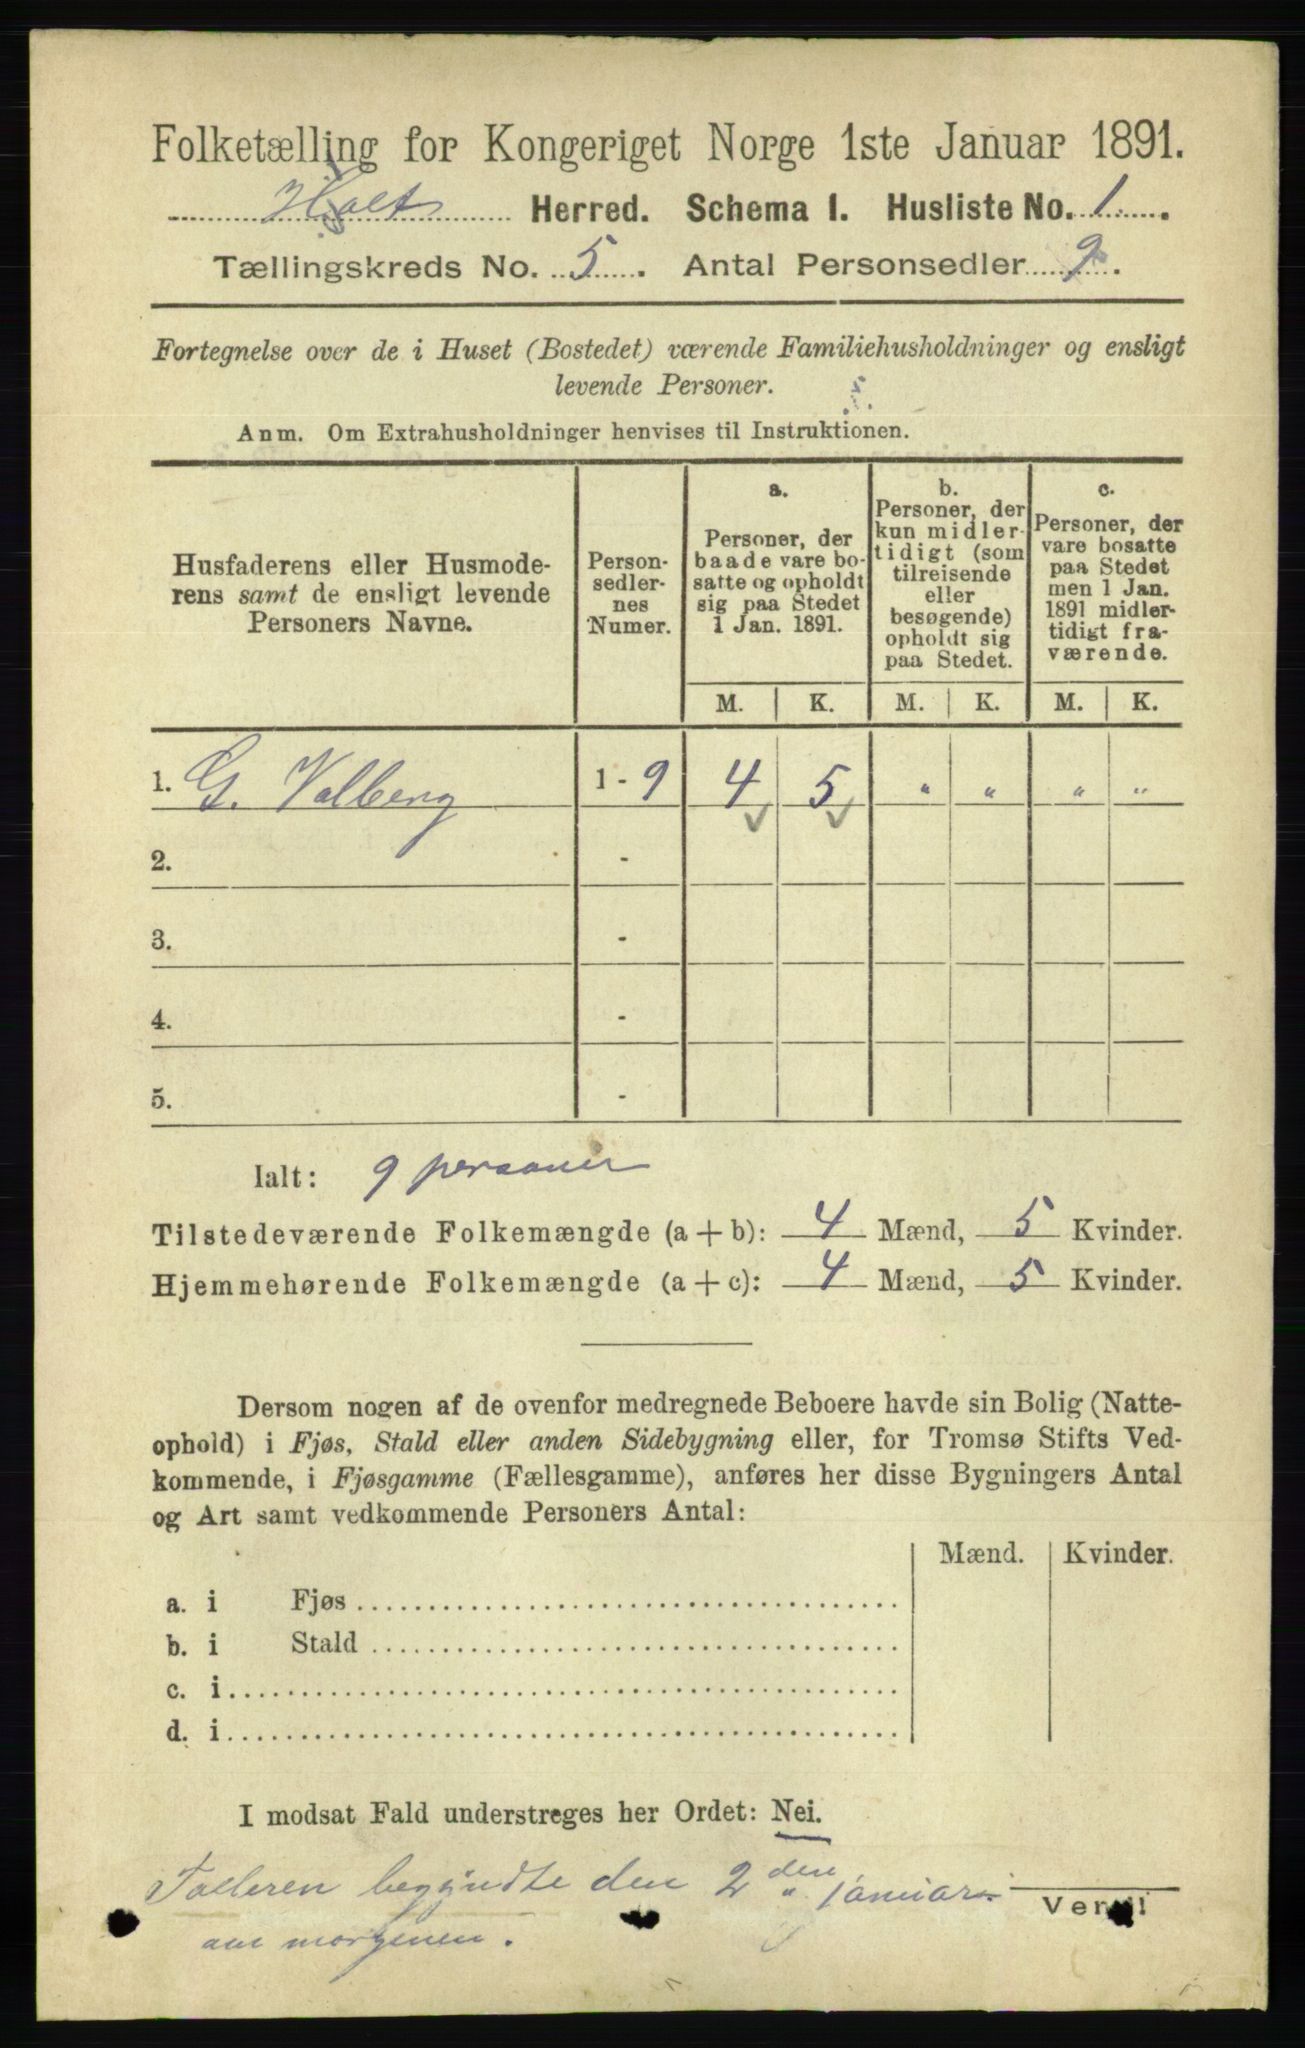 Folketælling for Kongeriget Norge 1ste Januar 1891.
Holt Herred. Schema I. Husliste No. 1.
Tællingskreds No. 5. Antal Personsedler 9.
Fortegnelse over de i Huset (Bostedet) værende Familiehusholdninger og ensligt
levende Personer.
5.
Anm. Om Extrahusholdninger henvises til Instruktionen.
Husfaderens eller Husmode-
rens samt de ensligt levende
Personers Navne.
Person-
sedler-
nes
Numer.
a.
Personer, der
baade vare bo-
satte og opholdt
sig paa Stedet
1 Jan. 1891.
b.
Personer, der
kun midler-
tidigt (som
tilreisende
eller
besøgende)
opholdt sig
paa Stedet.
c.
Personer, der
vare bosatte
paa Stedet
men 1 Jan.
1891 midler-
tidigt fra-
værende.
M. K. M. K. M. K.
1. G. Valberg 1 - 9 4 5 " " " "
2. -
3. -
4. -
5. -
Ialt: 9 personer
Tilstedeværende Folkemængde (a + b): 4 Mænd, 5 Kvinder.
Hjemmehørende Folkemængde (a + c): 4 Mænd, 5 Kvinder.
Dersom nogen af de ovenfor medregnede Beboere havde sin Bolig (Natte-
ophold) i Fjøs, Stald eller anden Sidebygning eller, for Tromsø Stifts Ved-
kommende, i Fjøsgamme (Fællesgamme), anføres her disse Bygningers Antal
og Art samt vedkommende Personers Antal:
Mænd. Kvinder.
a. i Fjøs
b. i Stald
c. i
d. i
I modsat Fald understreges her Ordet: Nei.
Tælleren begyndte den 2den januar
om morgenen.
Vend!